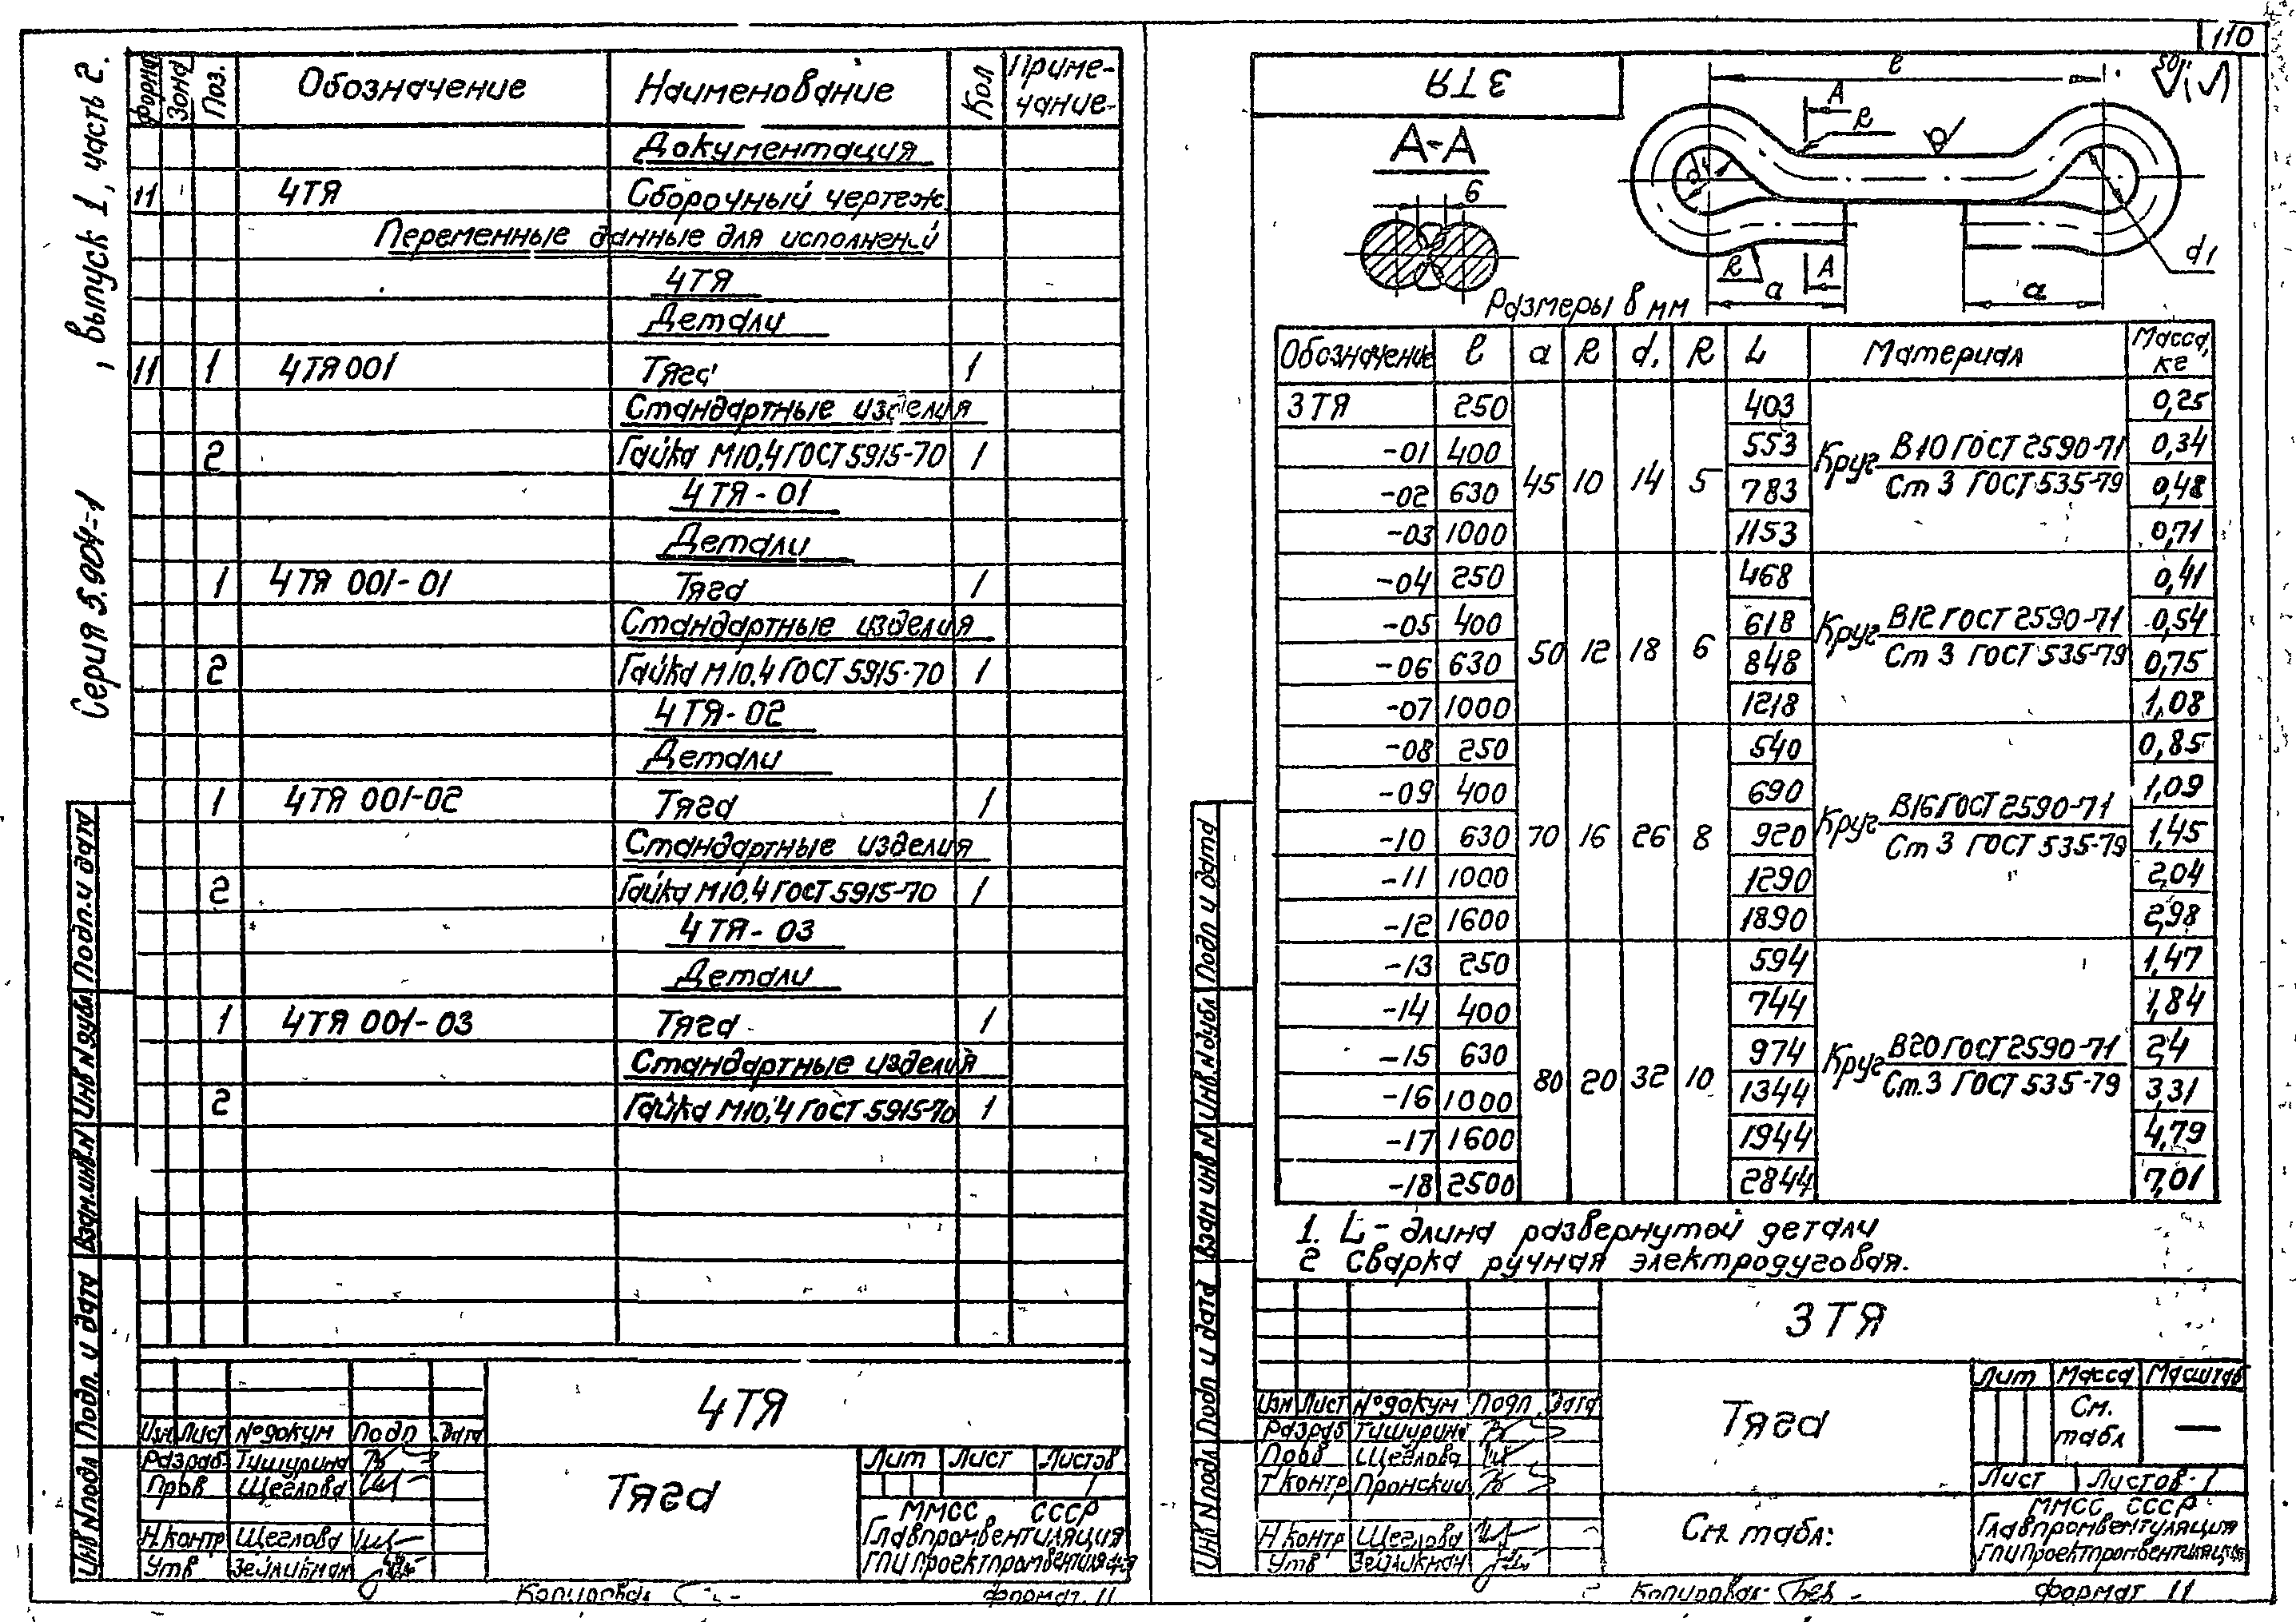 110
Серия 5.904-1 , выпуск 1, часть 2.
Форма Зона Поз. Обозначение Наименование Кол Приме-чание
Документация
11 4ТЯ Сборочный чертеж
Переменные данные для исполнений
4ТЯ
Детали
11 1 4ТЯ 001 Тяга 1
Стандартные изделия
2 Гайка М10.4 ГОСТ 5915-70 1
4ТЯ-01
Детали
1 4ТЯ 001-01 Тяга 1
Стандартные изделия
2 Гайка М10.4 ГОСТ 5915-70 1
4ТЯ-02
Детали
1 4ТЯ 001-02 Тяга 1
Стандартные изделия
2 Гайка М10.4 ГОСТ 5915-70 1
4ТЯ-03
Детали
1 4ТЯ 001-03 Тяга 1
Стандартные изделия
2 Гайка М10.4 ГОСТ 5915-70 1
Инв N подл Подп. и дата Взам. инв. N Инв N дубл Подп. и дата
4ТЯ
Изм Лист № докум Подп Дата
Разраб. Тишурина
Пров Щеглова
Н. контр Щеглова
Утв Зейликман
Тяга
Лит Лист Листов
1
ММСС СССР
Главпромвентиляция
ГПИ Проектпромвентиляция
Копировал
Формат 11
3ТЯ
А-А
6
l
A
R
d1
d1
R
A
a
a
50
Размеры в мм
Обозначение l a R d1 R L Материал Масса, кг
3ТЯ 250 403 0,25
-01 400 553 0,34
-02 630 45 10 14 5 783 Круг В10 ГОСТ 2590-71 / Ст 3 ГОСТ 535-79 0,48
-03 1000 1153 0,71
-04 250 468 0,41
-05 400 618 0,54
-06 630 50 12 18 6 848 Круг В12 ГОСТ 2590-71 / Ст 3 ГОСТ 535-79 0,75
-07 1000 1218 1,08
-08 250 540 0,85
-09 400 690 1,09
-10 630 70 16 26 8 920 Круг В16 ГОСТ 2590-71 / Ст 3 ГОСТ 535-79 1,45
-11 1000 1290 2,04
-12 1600 1890 2,98
-13 250 594 1,47
-14 400 744 1,84
-15 630 974 2,4
-16 1000 80 20 32 10 1344 Круг В20 ГОСТ 2590-71 / Ст. 3 ГОСТ 535-79 3,31
-17 1600 1944 4,79
-18 2500 2844 7,01
1. L - длина развернутой детали
2 Сварка ручная электродуговая.
Инв N подл Подп и дата Взам инв N Инв. N дубл Подп и дата
3ТЯ
Изм Лист № докум Подп. Дата
Разраб Тишурина
Пров Щеглова
Т контр Пронский
Н контр Щеглова
Утв Зейликман
Тяга
Лит Масса Масштаб
См. табл —
Лист Листов 1
См. табл.
ММСС СССР
Главпромвентиляция
ГПИ Проектпромвентиляция
Копировал
Формат 11